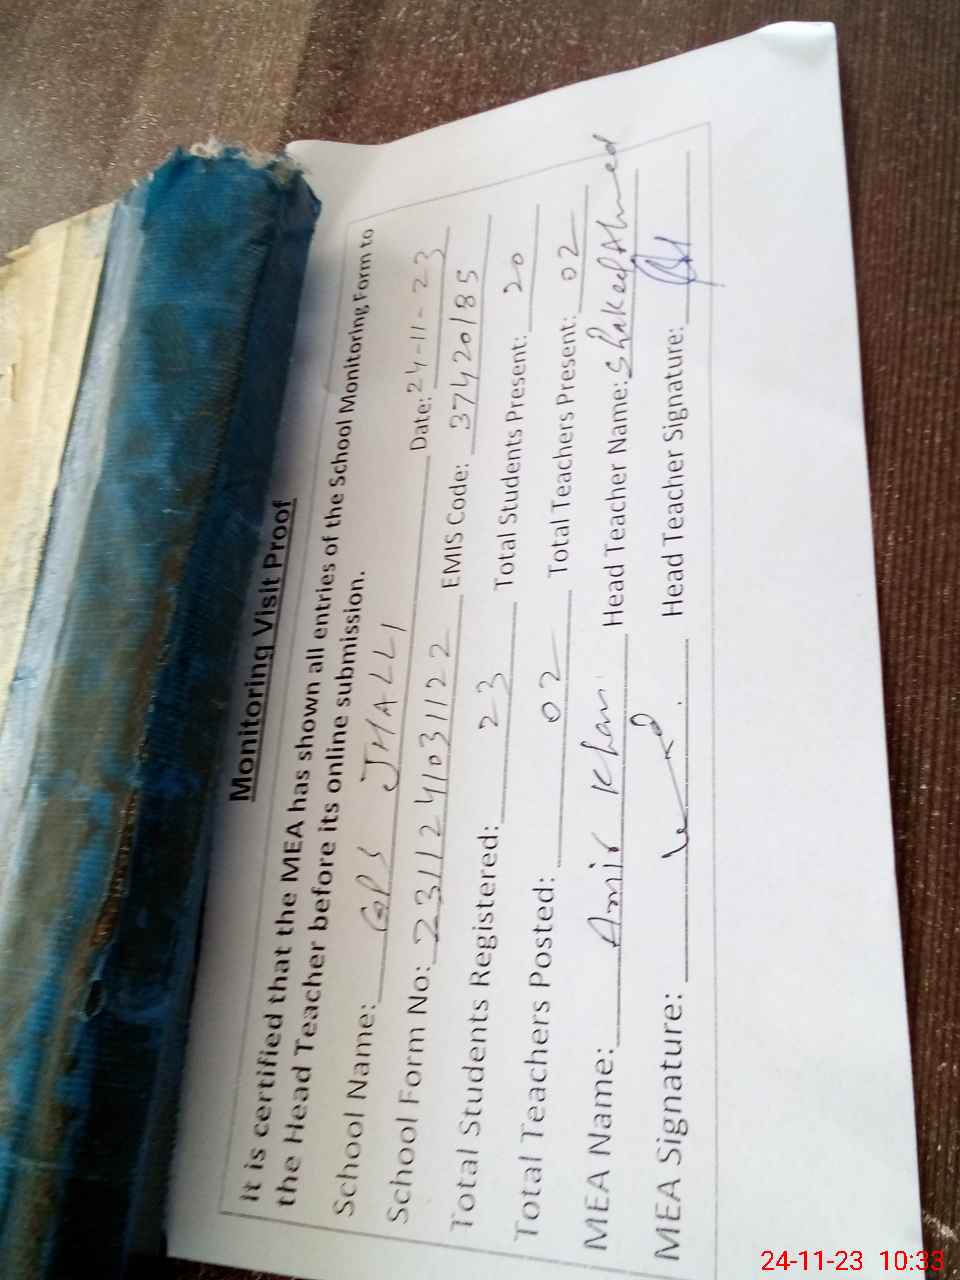 Monitoring Visit Proof
It is certified that the MEA has shown all entries of the School Monitoring Form to
the Head Teacher before its online submission.
School Name: GPS JHALLI Date: 24-11-23
School Form No: 2311241031122 EMIS Code: 37420185
Total Students Registered: 23 Total Students Present: 20
Total Teachers Posted: 02 Total Teachers Present: 02
MEA Name: Amir Khan Head Teacher Name: Shakeel Ahmed
MEA Signature: Head Teacher Signature:
24-11-23 10:33